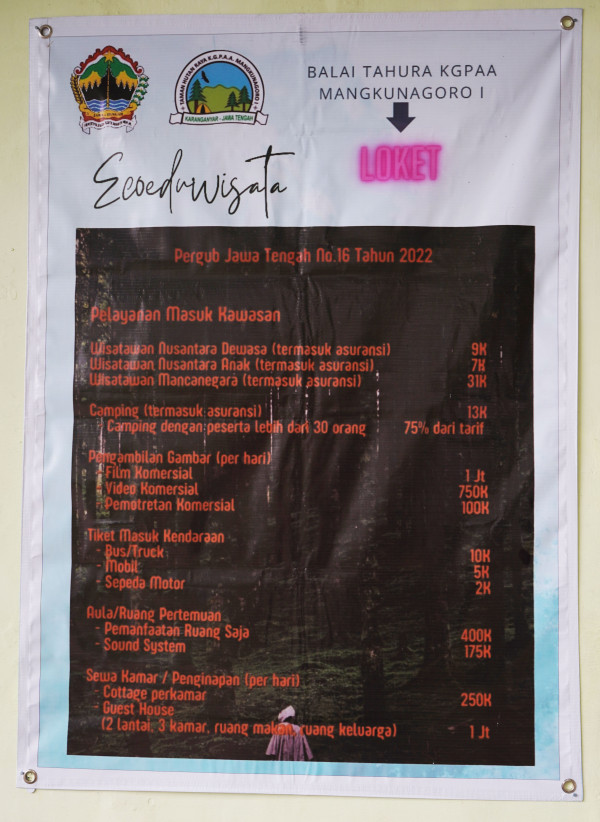 TAMAN HUTAN RAYA K.G.P.A.A. MANGKUNAGORO I
KARANGANYAR - JAWA TENGAH
BALAI TAHURA KGPAA
MANGKUNAGORO I
LOKET
Ecoeduwisata
Pergub Jawa Tengah No.16 Tahun 2022
Pelayanan Masuk Kawasan
Wisatawan Nusantara Dewasa (termasuk asuransi) 9K
Wisatawan Nusantara Anak (termasuk asuransi) 7K
Wisatawan Mancanegara (termasuk asuransi) 31K
Camping (termasuk asuransi) 13K
Camping dengan peserta lebih dari 30 orang 75% dari tarif
Pengambilan Gambar (per hari)
- Film Komersial 1 Jt
- Video Komersial 750K
- Pemotretan Komersial 100K
Tiket Masuk Kendaraan
- Bus/Truck 10K
- Mobil 5K
- Sepeda Motor 2K
Aula/Ruang Pertemuan
- Pemanfaatan Ruang Saja 400K
- Sound System 175K
Sewa Kamar / Penginapan (per hari)
- Cottage perkamar 250K
- Guest House
(2 lantai, 3 kamar, ruang makan, ruang keluarga) 1 Jt